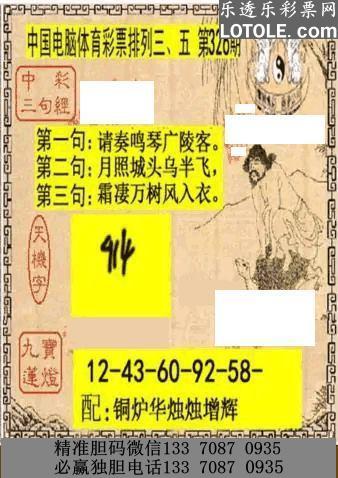 乐透乐彩票网
LOTOLE.com
中国电脑体育彩票排列三、五 第326期
中彩
三句經
第一句: 请奏鸣琴广陵客。
第二句: 月照城头乌半飞,
第三句: 霜凄万树风入衣。
天機字
914
九寶蓮燈
12-43-60-92-58-
配: 铜炉华烛烛增辉
精准胆码微信133 7087 0935
必赢独胆电话133 7087 0935